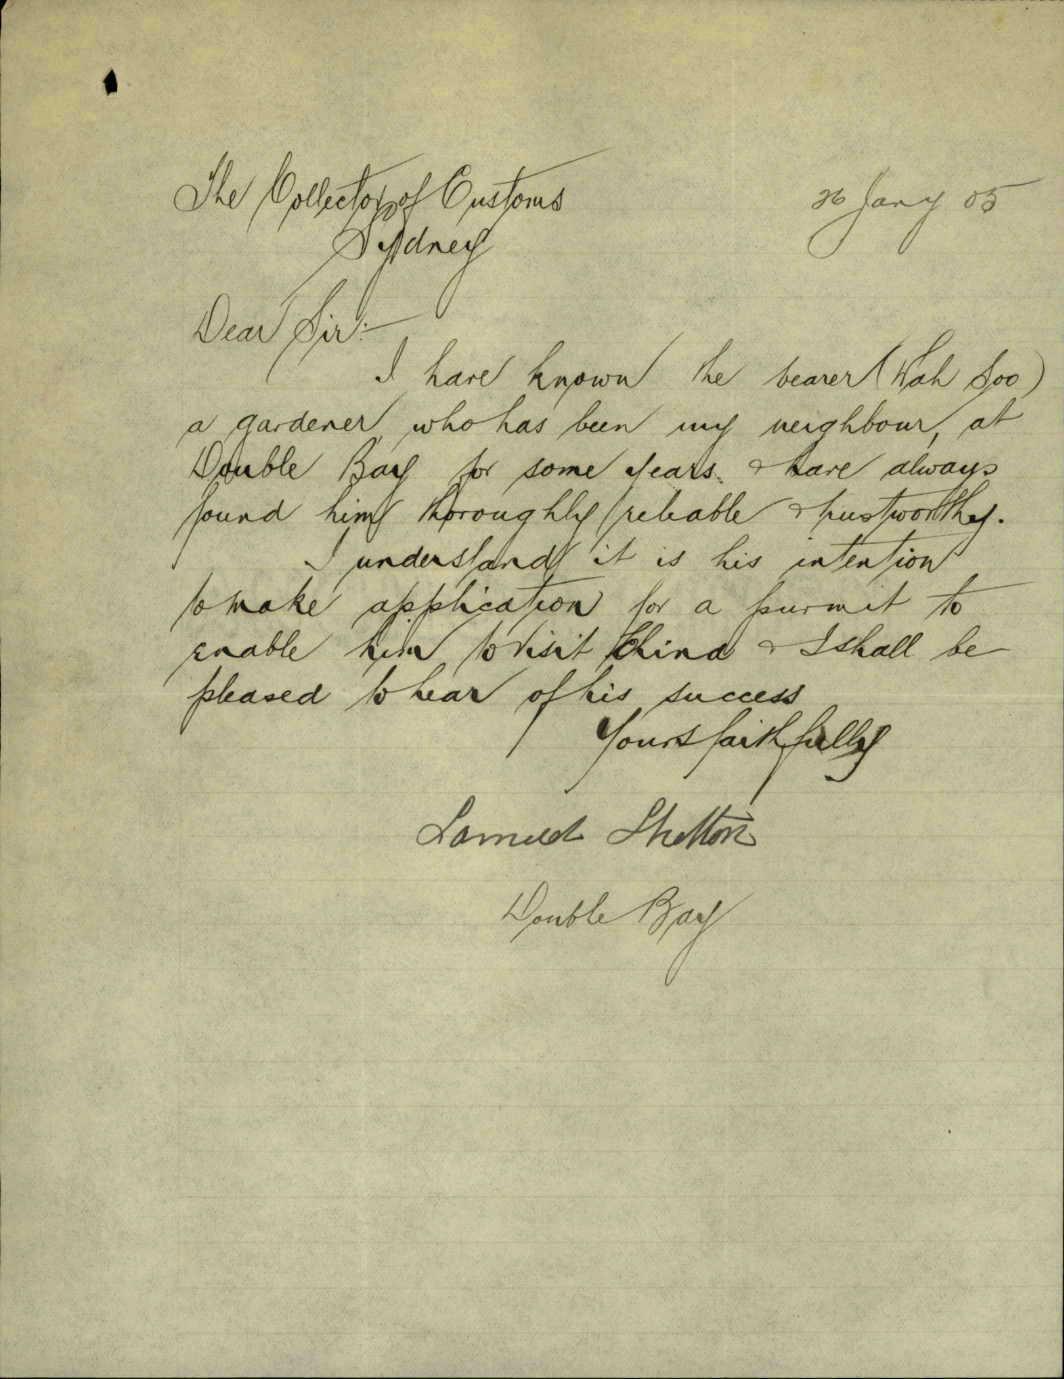 The Collector of Customs
26 Jany 05
Sydney
Dear Sir:-
I have known the bearer (Wah Soo)
a gardener, who has been my neighbour, at
Double Bay for some years & have always
found him thoroughly reliable & trustworthy.
I understand it is his intention
to make application for a purmit to
enable him to visit China & I shall be
pleased to hear of his success
Yours faithfully
Samuel Shelton
Double Bay